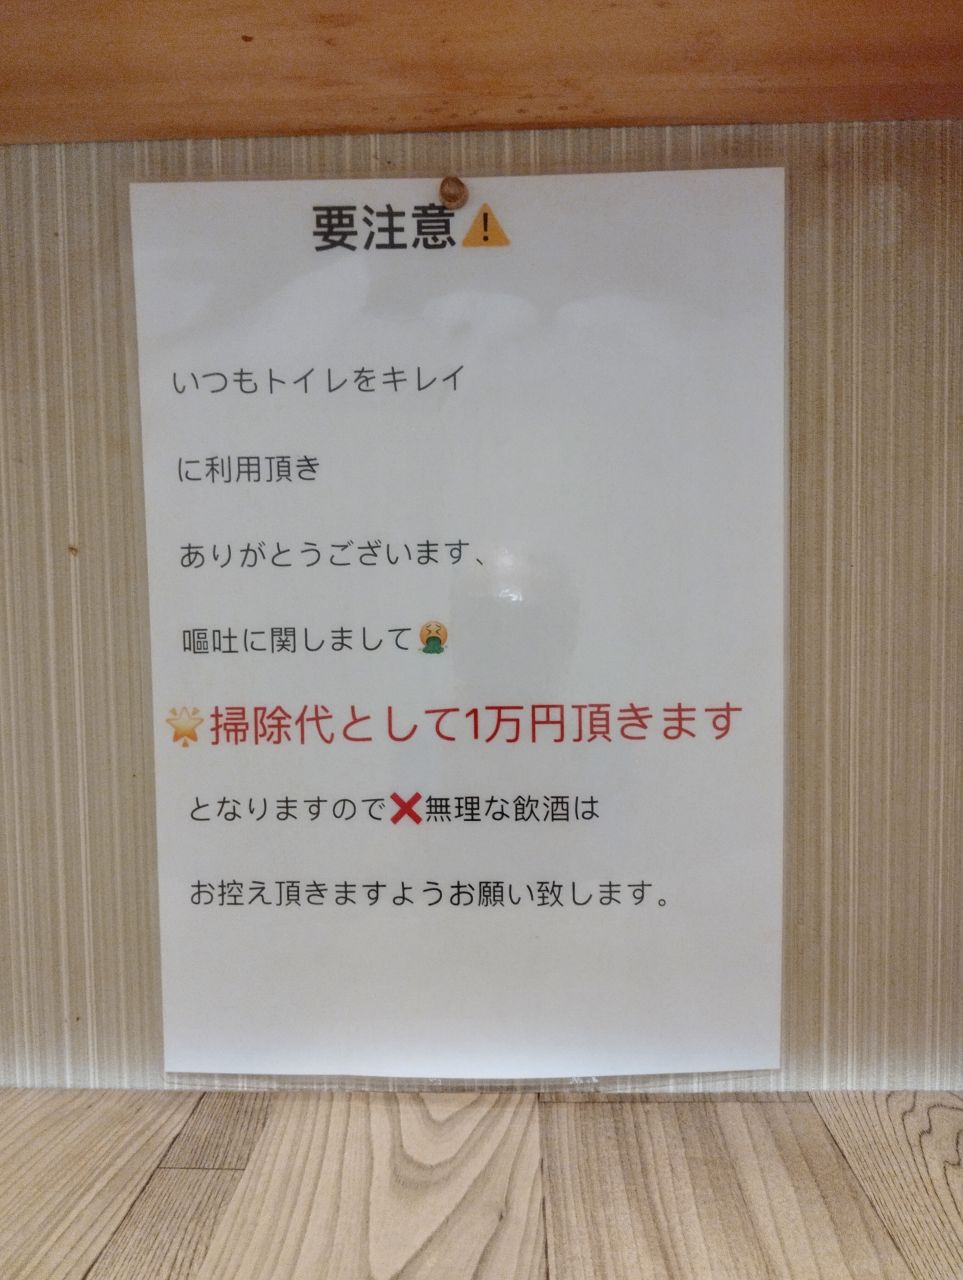 要注意⚠️
いつもトイレをキレイ
に利用頂き
ありがとうございます、
嘔吐に関しまして🤮
🌟掃除代として1万円頂きます
となりますので❌無理な飲酒は
お控え頂きますようお願い致します。